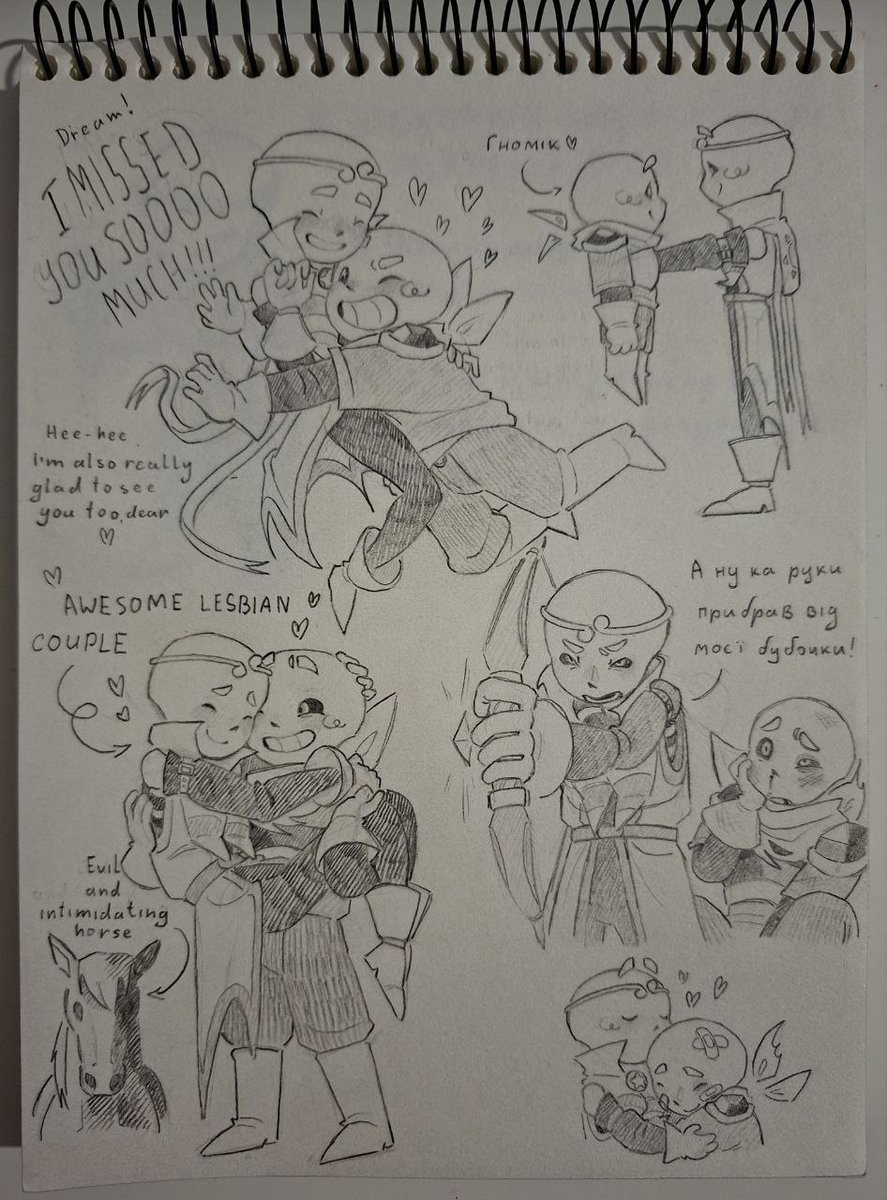 Dream!
I MISSED
YOU SOOOO
MUCH!!!
Гномік♡
Hee-hee
i'm also really
glad to see
you too, dear
♡
AWESOME LESBIAN
COUPLE
А ну ка руки
прибрав від
моєї бубочки!
Evil
and
intimidating
horse